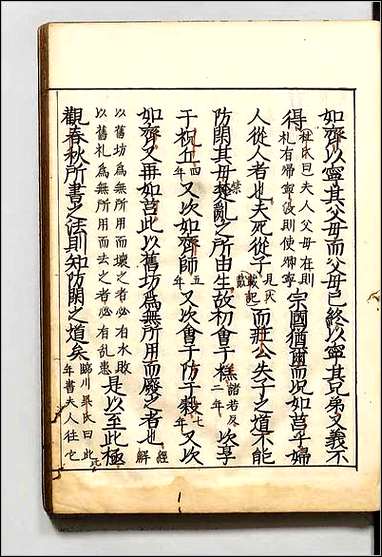 如齊以寧其父母而父母已終以寧其兄弟又義不
得杜氏曰夫人父母在則礼有帰寧没則使帰寧宗國猶爾而况如莒乎婦
人從人者也夫死從子見戴記而莊公失子之道不能
防閑其母禁亂之所由生故初會于禚諸若反二年次享
于祝丘四年又次如齊師五年又次會于防于穀七年又次
如齊又再如莒此以舊坊為無所用而廢之者也經解
以舊坊為無所用而壞之者必有水敗以舊礼為無所用而去之者必有乱患是以至此極
觀春秋所書之法則知防閑之道矣臨川吳氏曰此年書夫人往